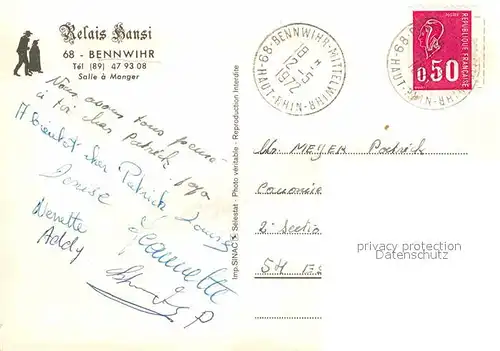 Relais Hansi
68 - BENNWIHR
Tél (89) 47 93 08
Salle à Manger
Nous avons tous pensé
à toi cher Patrick
A bientôt cher Patrick
Denise
Jeannette
Nenette
Addy
Imp. SINAC - Sélestat - Photo véritable - Reproduction Interdite
68 - BENNWIHR-MITTELWIHR
HAUT-RHIN
12 -5
1972
REPUBLIQUE FRANÇAISE
0,50
Mr MEYER Patrick
2e Section
54
privacy protection
Datenschutz